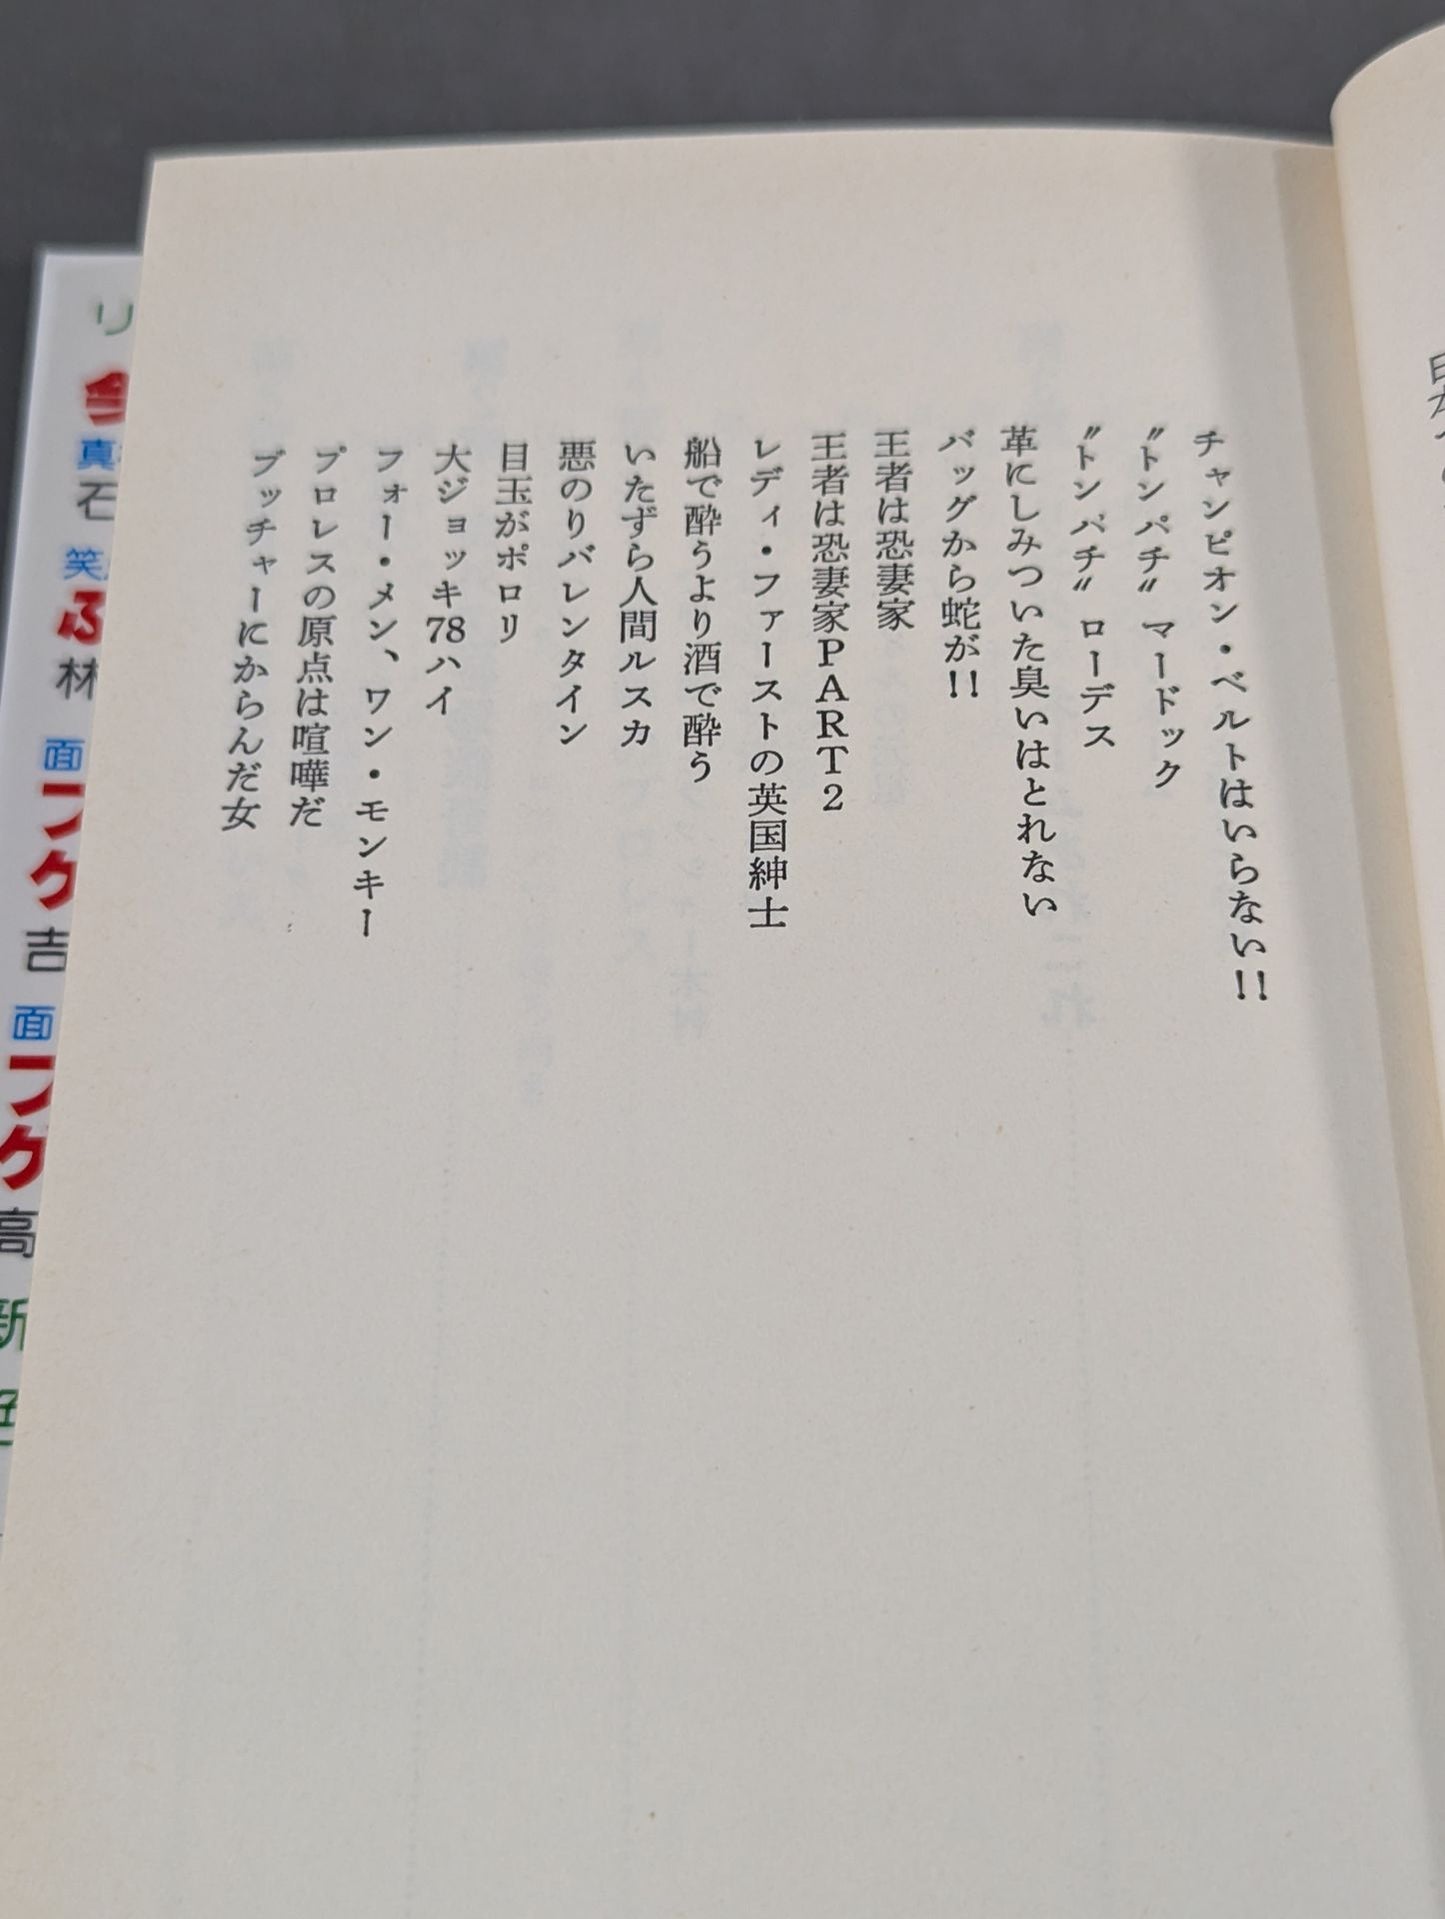 チャンピオン・ベルトはいらない!!
〝トンパチ〟マードック
〝トンパチ〟ローデス
革にしみついた臭いはとれない
バッグから蛇が!!
王者は恐妻家
王者は恐妻家PART2
レディ・ファーストの英国紳士
船で酔うより酒で酔う
いたずら人間ルスカ
悪のりバレンタイン
目玉がポロリ
大ジョッキ78ハイ
フォー・メン、ワン・モンキー
プロレスの原点は喧嘩だ
ブッチャーにからんだ女
リ
真
石
笑
ふ
林
面
吉
面
高
新